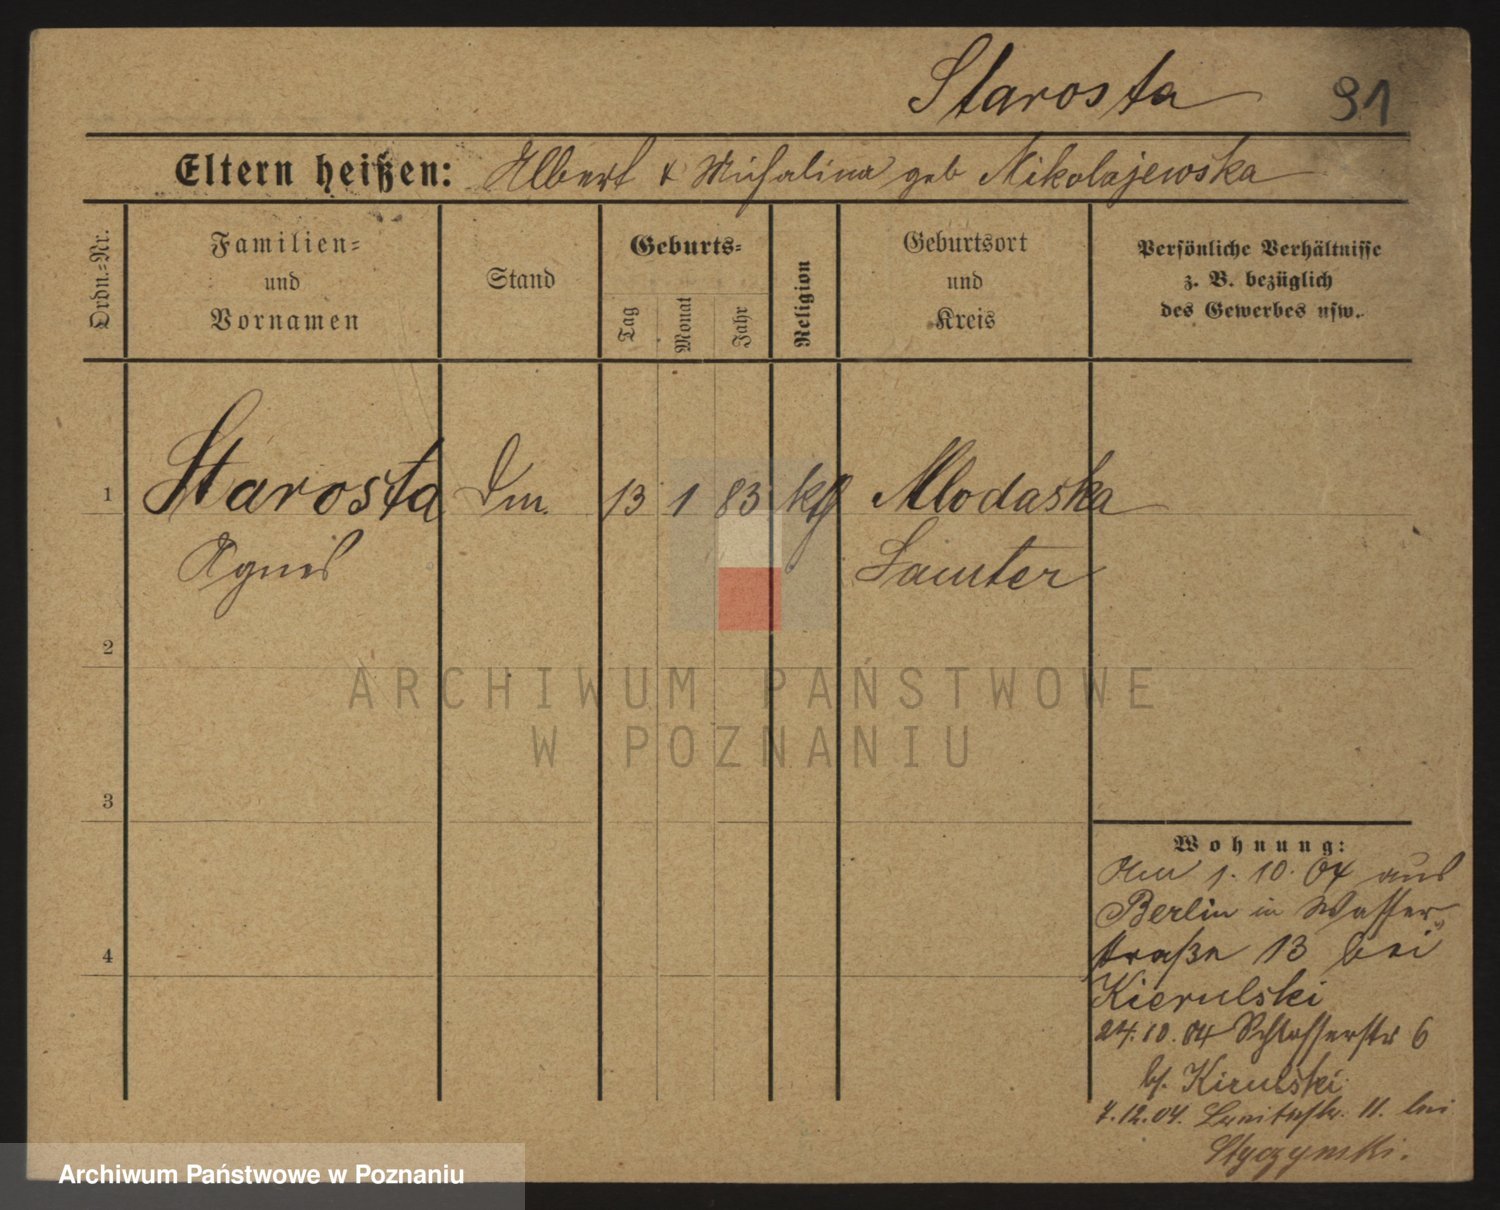 Starosta 91
Eltern heißen: Albert & Michalina geb Nikolajewska
Ordn.=Nr.
Familien=
und
Vornamen
Stand
Geburts=
Tag
Monat
Jahr
Religion
Geburtsort
und
Kreis
Persönliche Verhältnisse
z. B. bezüglich
des Gewerbes usw.
1 Starosta 13 1 83 kth Mlodasko
Agnes Samter
2
3
4
ARCHIWUM PAŃSTWOWE
W POZNANIU
Wohnung:
1. 10. 04 aus
Berlin in Wasser
straße 13 bei
Kierulski
24. 10. 04 Schlosserstr 6
b/. Kirulski
7. 12. 04. Breitestr. 11. bei
Styczynski.
Archiwum Państwowe w Poznaniu